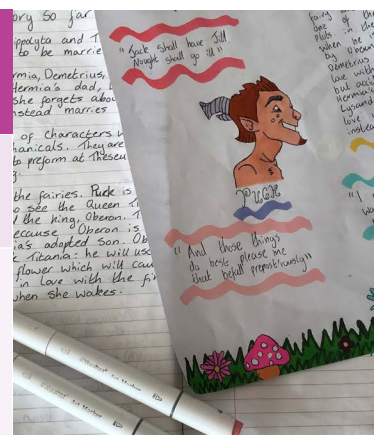 ory so far
ippolyta and T
to be marrie
rmia, Demetrius,
Hermia's dad,
she forgets abou
nstead marries
of characters w
hanicals. They are
to preform at Theseu
the fairies. Puck is
o see the Queen Ti
the king, Oberon. T
ecause Oberon is
ia's adopted son. Ob
Titania: he will use
flower which will cau
in love with the fi
when she wakes.
"Jack shall have Jill.
Nought shall go ill"
PUCK
"And those things
do best please me
that befall prepost'rously"
fairy
one of th
puts
when he is
by Oberon
Demetrius
love with
but acci
Hermia's
Lysand
love
instea
"I
wa